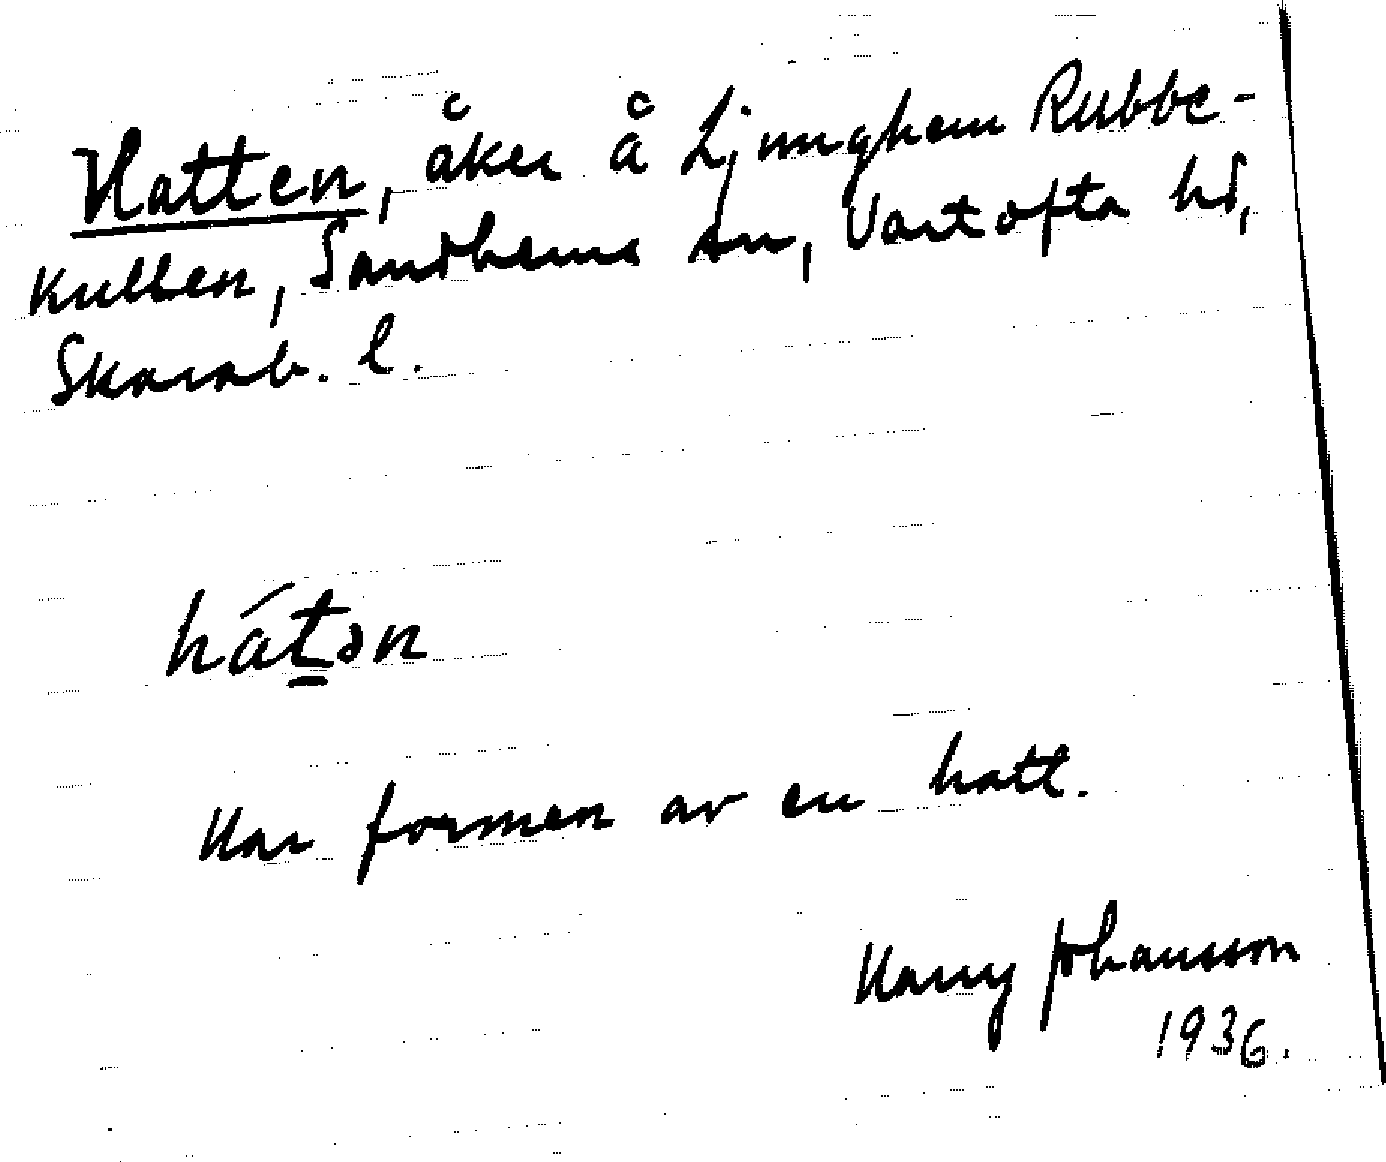 Hatten, åker å Ljunghem Rubbe-
kullen, Sandhems sn, Vartofta hd,
Skarab. l.
hát̲ən
Har formen av en hatt.
Harry Johansson
1936.